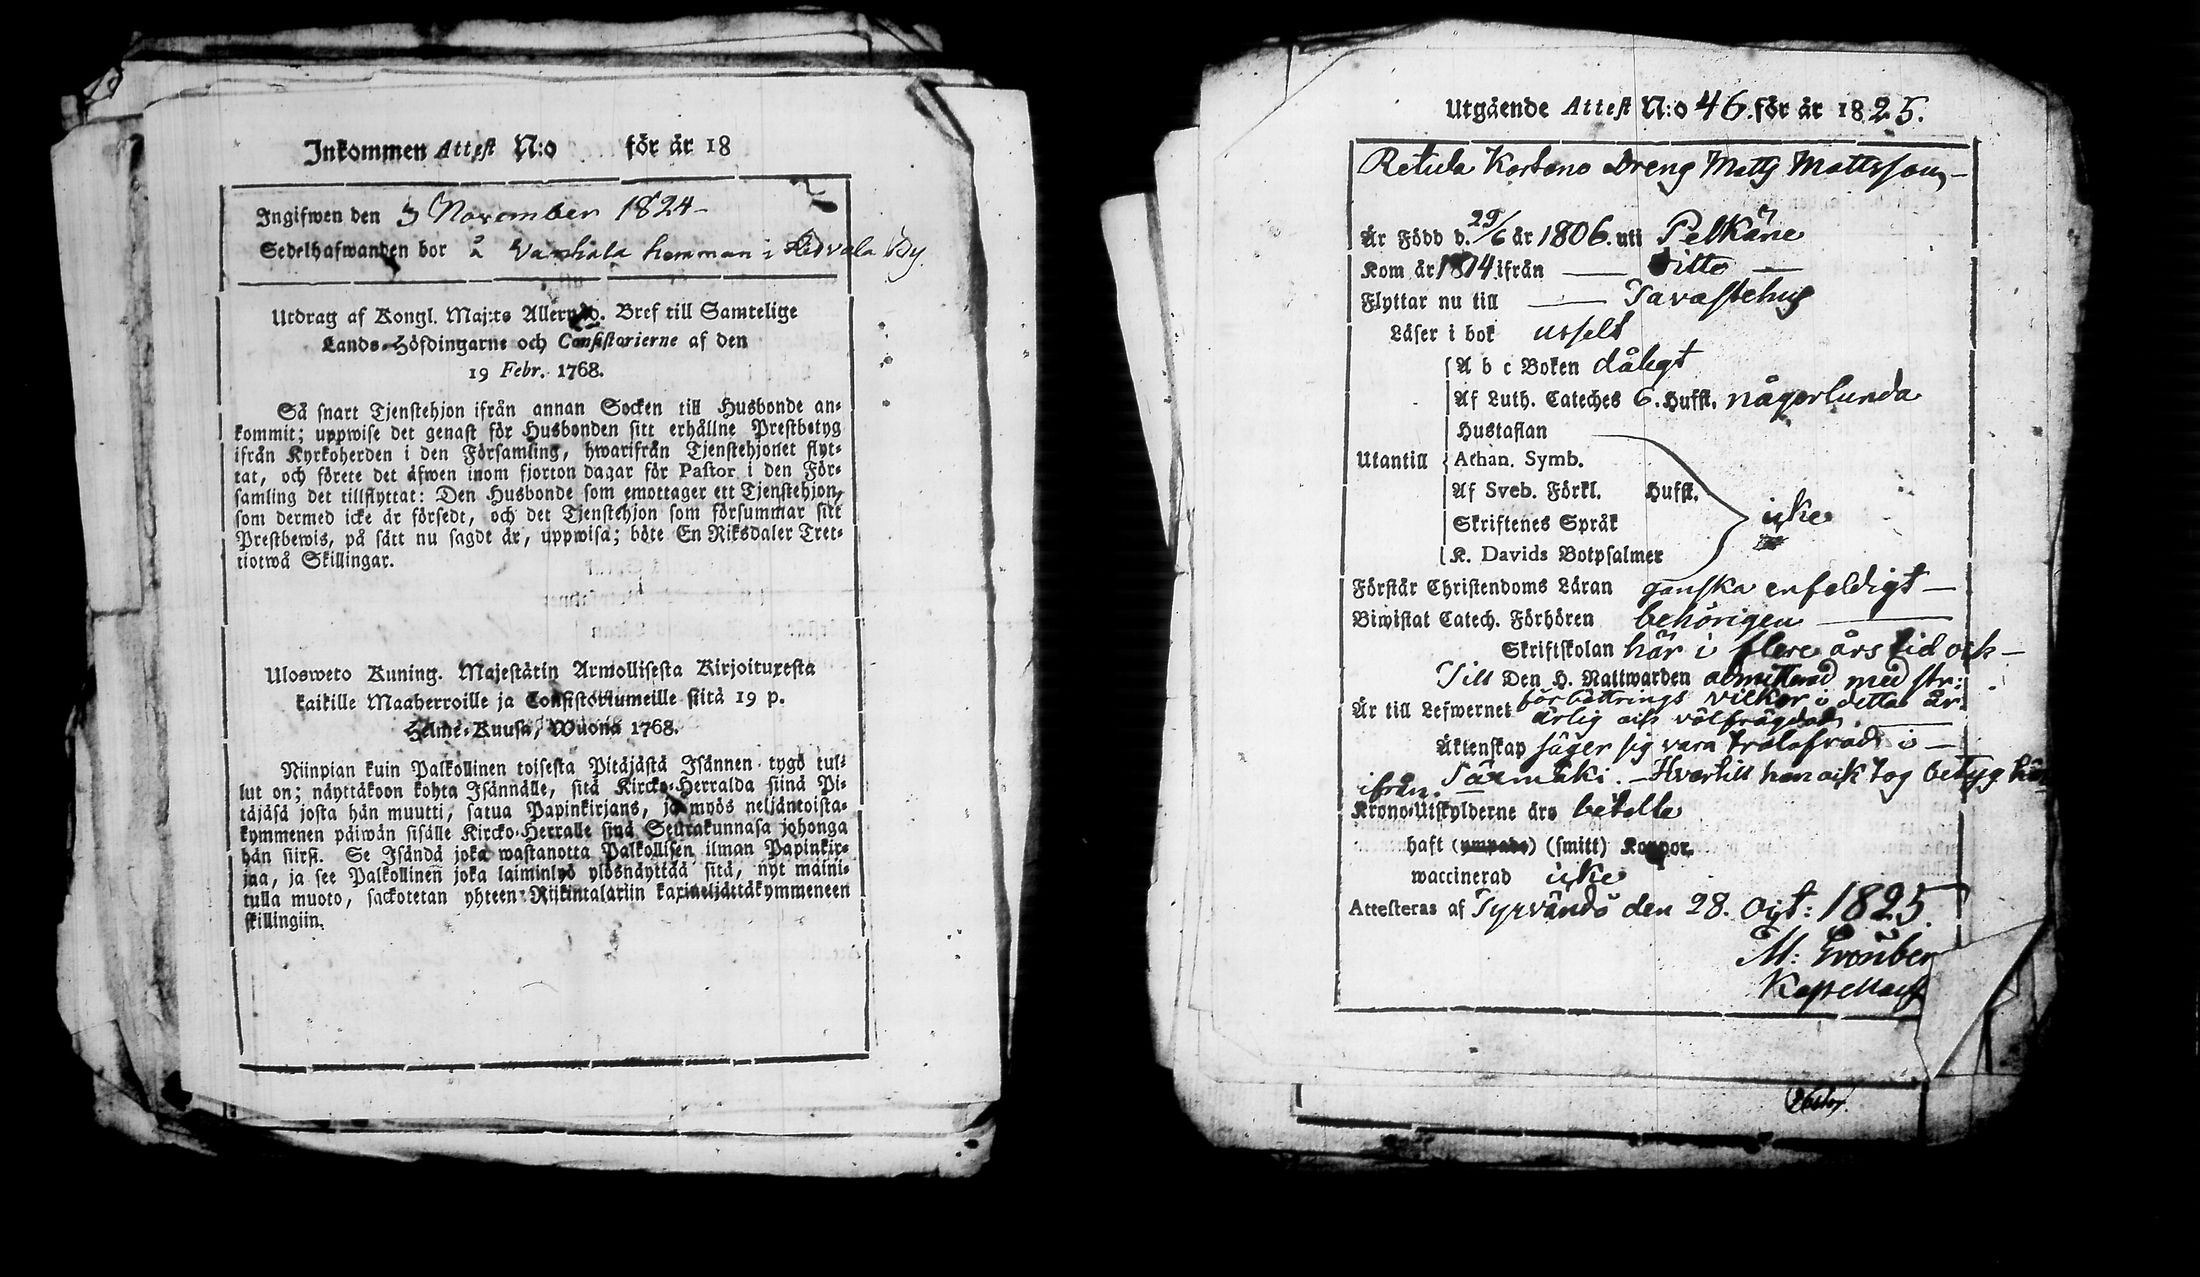 Inkommen Attest N:o för år 18
Ingifwen den 3 November 1824
Sedelhafwanden bor å hemman i By
Utdrag af Kongl. Maj:ts Allernåd. Bref till Samtelige
Lands-Höfdingarne och Consistorierne af den
19 Febr. 1768.
Så snart Tjenstehjon ifrån annan Socken till Husbonde an-
kommit; uppwise det genast för Husbonden sitt erhållne Prestbetyg
ifrån Kyrkoherden i den Församling, hwarifrån Tjenstehjonet flyt-
tat, och förete det äfwen inom fjorton dagar för Pastor i den För-
samling det tillflyttat: Den Husbonde som emottager ett Tjenstehjon,
som dermed icke är försedt, och det Tjenstehjon som försummar sitt
Prestbewis, på sätt nu sagdt är, uppwisa; böte En Riksdaler Tret-
tiotwå Skillingar.
Ulosweto Kuning. Majestätin Armollisesta Kirjoituxesta
kaikille Maaherroille ja Consistoriumeille siitä 19 p.
Helme-Kuusa, Wuona 1768.
Niinpian kuin Palkollinen toisesta Pitäjästä Isännen tygö tul-
lut on; näyttäkoon kohta Isännälle, sitä Kircko-Herralda siinä Pi-
täjäsä josta hän muutti, saatua Papinkirjans, ja myös neljäntoista-
kymmenen päiwän sisälle Kircko-Herralle siinä Seurakunnasa johonga
hän siirsi. Se Isändä joka wastanotta Palkollisen ilman Papinkir-
jaa, ja see Palkollinen joka laiminlyö ylösnäyttää sitä, nyt maini-
tulla muoto, sackotetan yhteen Rijkintalariin kaxineljättäkymmeneen
skillingiin.
Utgående Attest N:o 46. för år 1825.
Retula Dreng Matts Mattsson
Är Född d. 29/6 år 1806. uti Pelkäne
Kom år 1814 ifrån — ditto —
Flyttar nu till — Tavastehus
Läser i bok uselt
A b c Boken dåligt
Af Luth. Cateches 6. Hufst. någorlunda
Hustaflan
Utantill Athan. Symb.
Af Sveb. Förkl. Hufst.
Skriftenes Språk icke
K. Davids Botpsalmer
Förstår Christendoms Läran ganska enfeldigt —
Biwistat Catech. Förhören behörigen —
Skriftskolan här i flere års tid och —
Till Den H. Nattwarden admitterad med
förbättrings vilkor i detta år.
Är till Lefwernet ärlig och välfrägdad. —
Äktenskap säger sig vara trolofvad i —
Särmäki. — Hvartill han ock tog betyg här
ifrån.
Krono-Utskylderne äro betalte
haft (ympade) (smitt) Koppor.
waccinerad icke
Attesteras af Tyrvändö den 28. Oct: 1825
M:
Kapellan